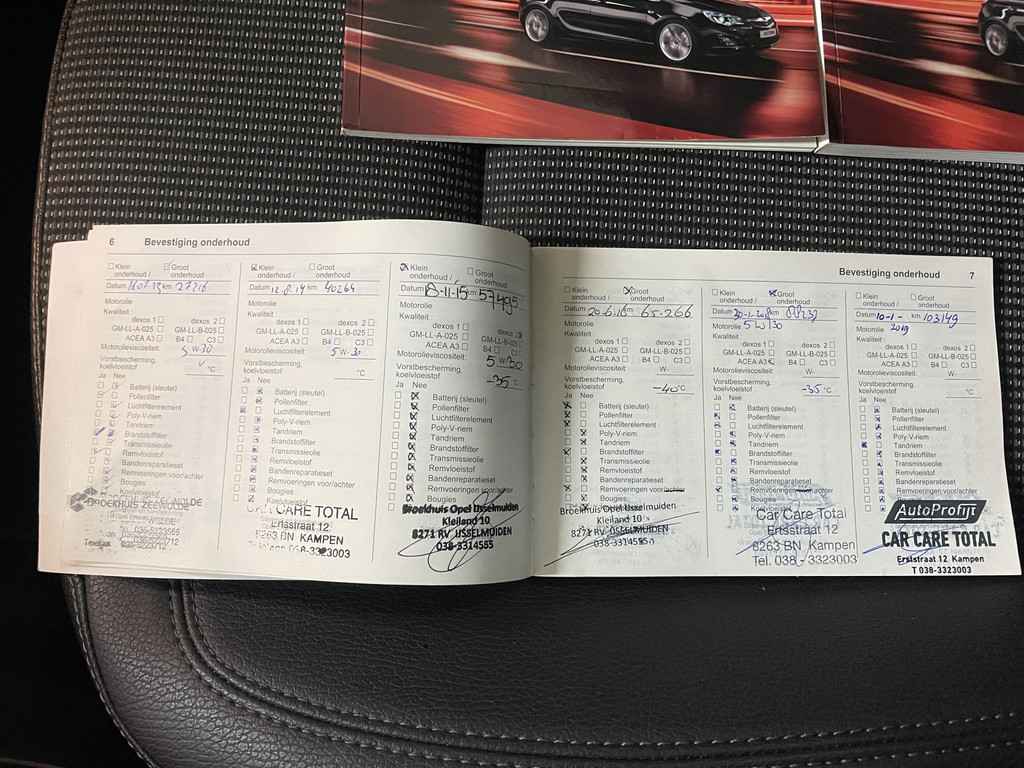 6 Bevestiging onderhoud
Klein onderhoud / Groot onderhoud
Datum km 27716
Motorolie
Kwaliteit
dexos 1 dexos 2
GM-LL-A-025 GM-LL-B-025
ACEA A3 B4 C3
Motorolieviscositeit:
5 W-30
Vorstbescherming, koelvloeistof °C
Ja Nee
Batterij (sleutel)
Pollenfilter
Luchtfilterelement
Poly-V-riem
Tandriem
Brandstoffilter
Transmissieolie
Remvloeistof
Bandenreparatieset
Remvoeringen voor/achter
Bougies
BROEKHUIS ZEEWOLDE
Klein onderhoud / Groot onderhoud
Datum 12.8.14 km 40264
Motorolie
Kwaliteit:
dexos 1 dexos 2
GM-LL-A-025 GM-LL-B-025
ACEA A3 B4 C3
Motorolieviscositeit:
5 W-30
Vorstbescherming, koelvloeistof °C
Ja Nee
Batterij (sleutel)
Pollenfilter
Luchtfilterelement
Poly-V-riem
Tandriem
Brandstoffilter
Transmissieolie
Remvloeistof
Bandenreparatieset
Remvoeringen voor/achter
Bougies
CAR CARE TOTAL
Ertsstraat 12
8263 BN KAMPEN
038-3323003
Klein onderhoud / Groot onderhoud
Datum 8-11-15 km 57495
Motorolie
Kwaliteit:
dexos 1 dexos 2
GM-LL-A-025 GM-LL-B-025
ACEA A3 B4 C3
Motorolieviscositeit:
5 W-30
Vorstbescherming, koelvloeistof -35 °C
Ja Nee
Batterij (sleutel)
Pollenfilter
Luchtfilterelement
Poly-V-riem
Tandriem
Brandstoffilter
Transmissieolie
Remvloeistof
Bandenreparatieset
Remvoeringen voor/achter
Bougies
Broekhuis Opel IJsselmuiden
Kleiland 10
8271 RV IJSSELMUIDEN
038-3314555
Bevestiging onderhoud 7
Klein onderhoud / Groot onderhoud
Datum km 65-266
Motorolie
Kwaliteit:
dexos 1 dexos 2
GM-LL-A-025 GM-LL-B-025
ACEA A3 B4 C3
Motorolieviscositeit: W-
Vorstbescherming, koelvloeistof -40°C
Ja Nee
Batterij (sleutel)
Pollenfilter
Luchtfilterelement
Poly-V-riem
Tandriem
Brandstoffilter
Transmissieolie
Remvloeistof
Bandenreparatieset
Remvoeringen voor/achter
Bougies
Broekhuis Opel IJsselmuiden
Kleiland 10
8271 RV IJSSELMUIDEN
038-3314555
Klein onderhoud / Groot onderhoud
Datum km
Motorolie 5W30
Kwaliteit:
dexos 1 dexos 2
GM-LL-A-025 GM-LL-B-025
ACEA A3 B4 C3
Motorolieviscositeit: W-
Vorstbescherming, koelvloeistof -35°C
Ja Nee
Batterij (sleutel)
Pollenfilter
Luchtfilterelement
Poly-V-riem
Tandriem
Brandstoffilter
Transmissieolie
Remvloeistof
Bandenreparatieset
Remvoeringen voor/achter
Bougies
Car Care Total
Ertsstraat 12
8263 BN Kampen
Tel. 038 - 3323003
Klein onderhoud / Groot onderhoud
Datum 10-1- km 103149
Motorolie 2019
Kwaliteit:
dexos 1 dexos 2
GM-LL-A-025 GM-LL-B-025
ACEA A3 B4 C3
Motorolieviscositeit: W-
Vorstbescherming, koelvloeistof °C
Ja Nee
Batterij (sleutel)
Pollenfilter
Luchtfilterelement
Poly-V-riem
Tandriem
Brandstoffilter
Transmissieolie
Remvloeistof
Bandenreparatieset
Remvoeringen voor/achter
Bougies
AutoProfijt
CAR CARE TOTAL
Ertsstraat 12 Kampen
T 038-3323003